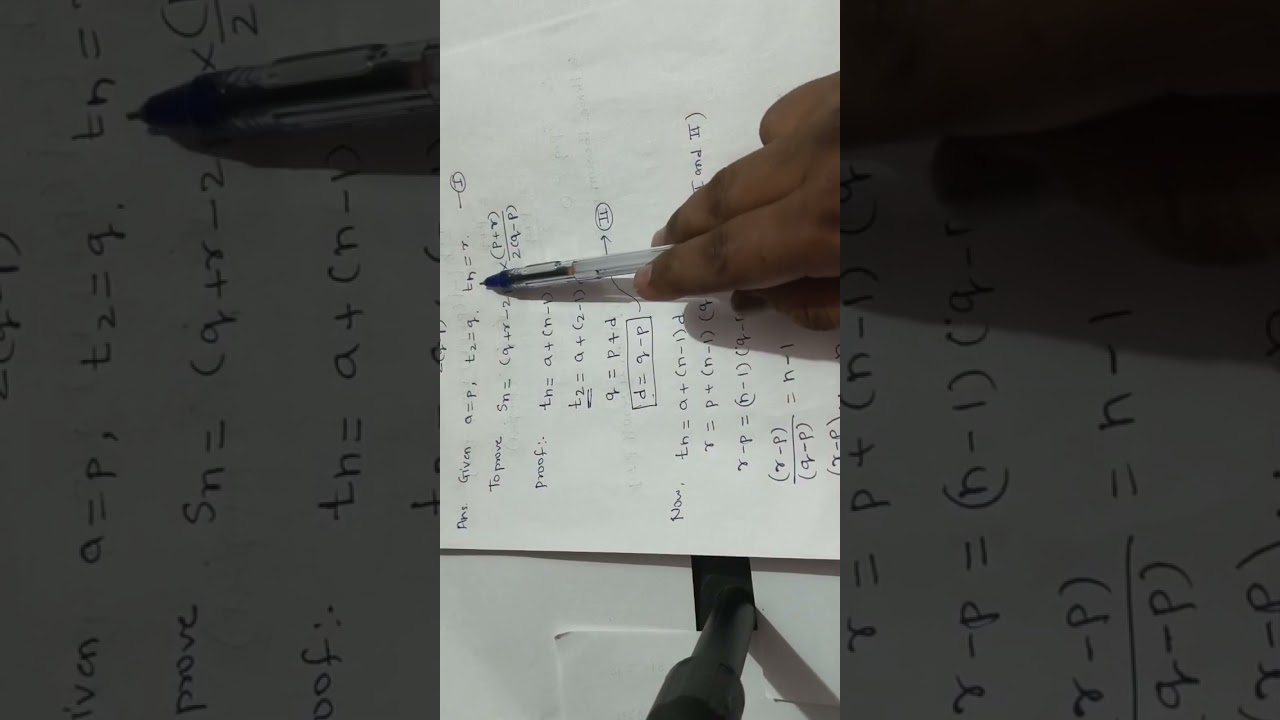 Ans. Given a=p, t2=q. tn=r. —Ⅰ
To prove Sn = (q+r-2 × (p+r)/2(q-p)
proof:. tn = a+(n-1)
t2 = a+(2-1)
q = p+d → Ⅱ
d = q-p
Now, tn = a+(n-1)d
r = p+(n-1)(q and Ⅱ)
r-p = (n-1)(q-
(r-p)/(q-p) = n-1
(r-p)